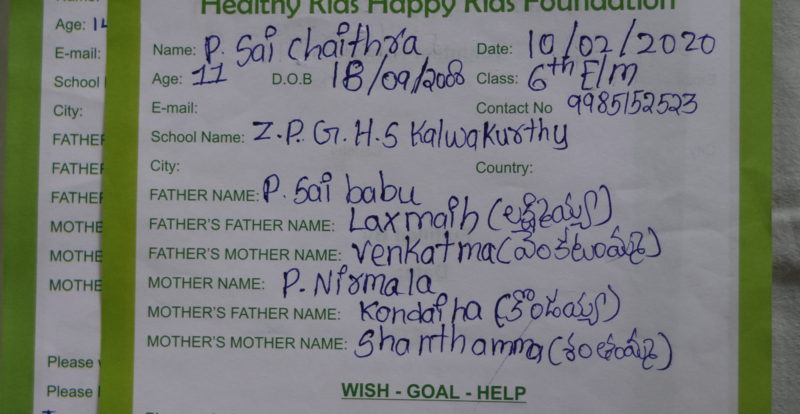 Healthy Kids Happy Kids Foundation
Name: P. Sai Chaithra Date: 10/02/2020
Age: 11 D.O.B 18/09/2008 Class: 6th E/m
E-mail: Contact No 9985152523
School Name: Z.P.G.H.S Kalwakurthy
City: Country:
FATHER NAME: P. Sai babu
FATHER'S FATHER NAME: Laxmaih (లక్ష్మయ్య)
FATHER'S MOTHER NAME: Venkatma (వెంకటమ్మ)
MOTHER NAME: P. Nirmala
MOTHER'S FATHER NAME: Kondaiha (కొండయ్య)
MOTHER'S MOTHER NAME: Shanthamma (శంతమ్మ)
WISH - GOAL - HELP
Age: 14
E-mail:
School
City:
FATHER
FATHER
FATHER
MOTHE
MOTHE
MOTHE
Please
Please